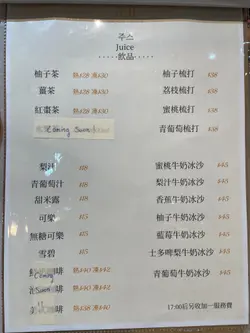 주스
Juice
飲品
柚子茶 熱$28 凍$30
薑茶 熱$28 凍$30
紅棗茶 熱$28 凍$30
Coming Soon
柚子梳打 $38
荔枝梳打 $38
蜜桃梳打 $38
青葡萄梳打 $38
梨汁 $18
青葡萄汁 $18
甜米露 $18
可樂 $15
無糖可樂 $15
雪碧 $15
啡 熱$40 凍$42
Coming
Soon 啡 熱$40 凍$42
啡 熱$38 凍$40
蜜桃牛奶冰沙 $45
梨汁牛奶冰沙 $45
香蕉牛奶冰沙 $45
柚子牛奶冰沙 $45
藍莓牛奶冰沙 $45
士多啤梨牛奶冰沙 $45
青葡萄牛奶冰沙 $45
17:00后另收加一服務費